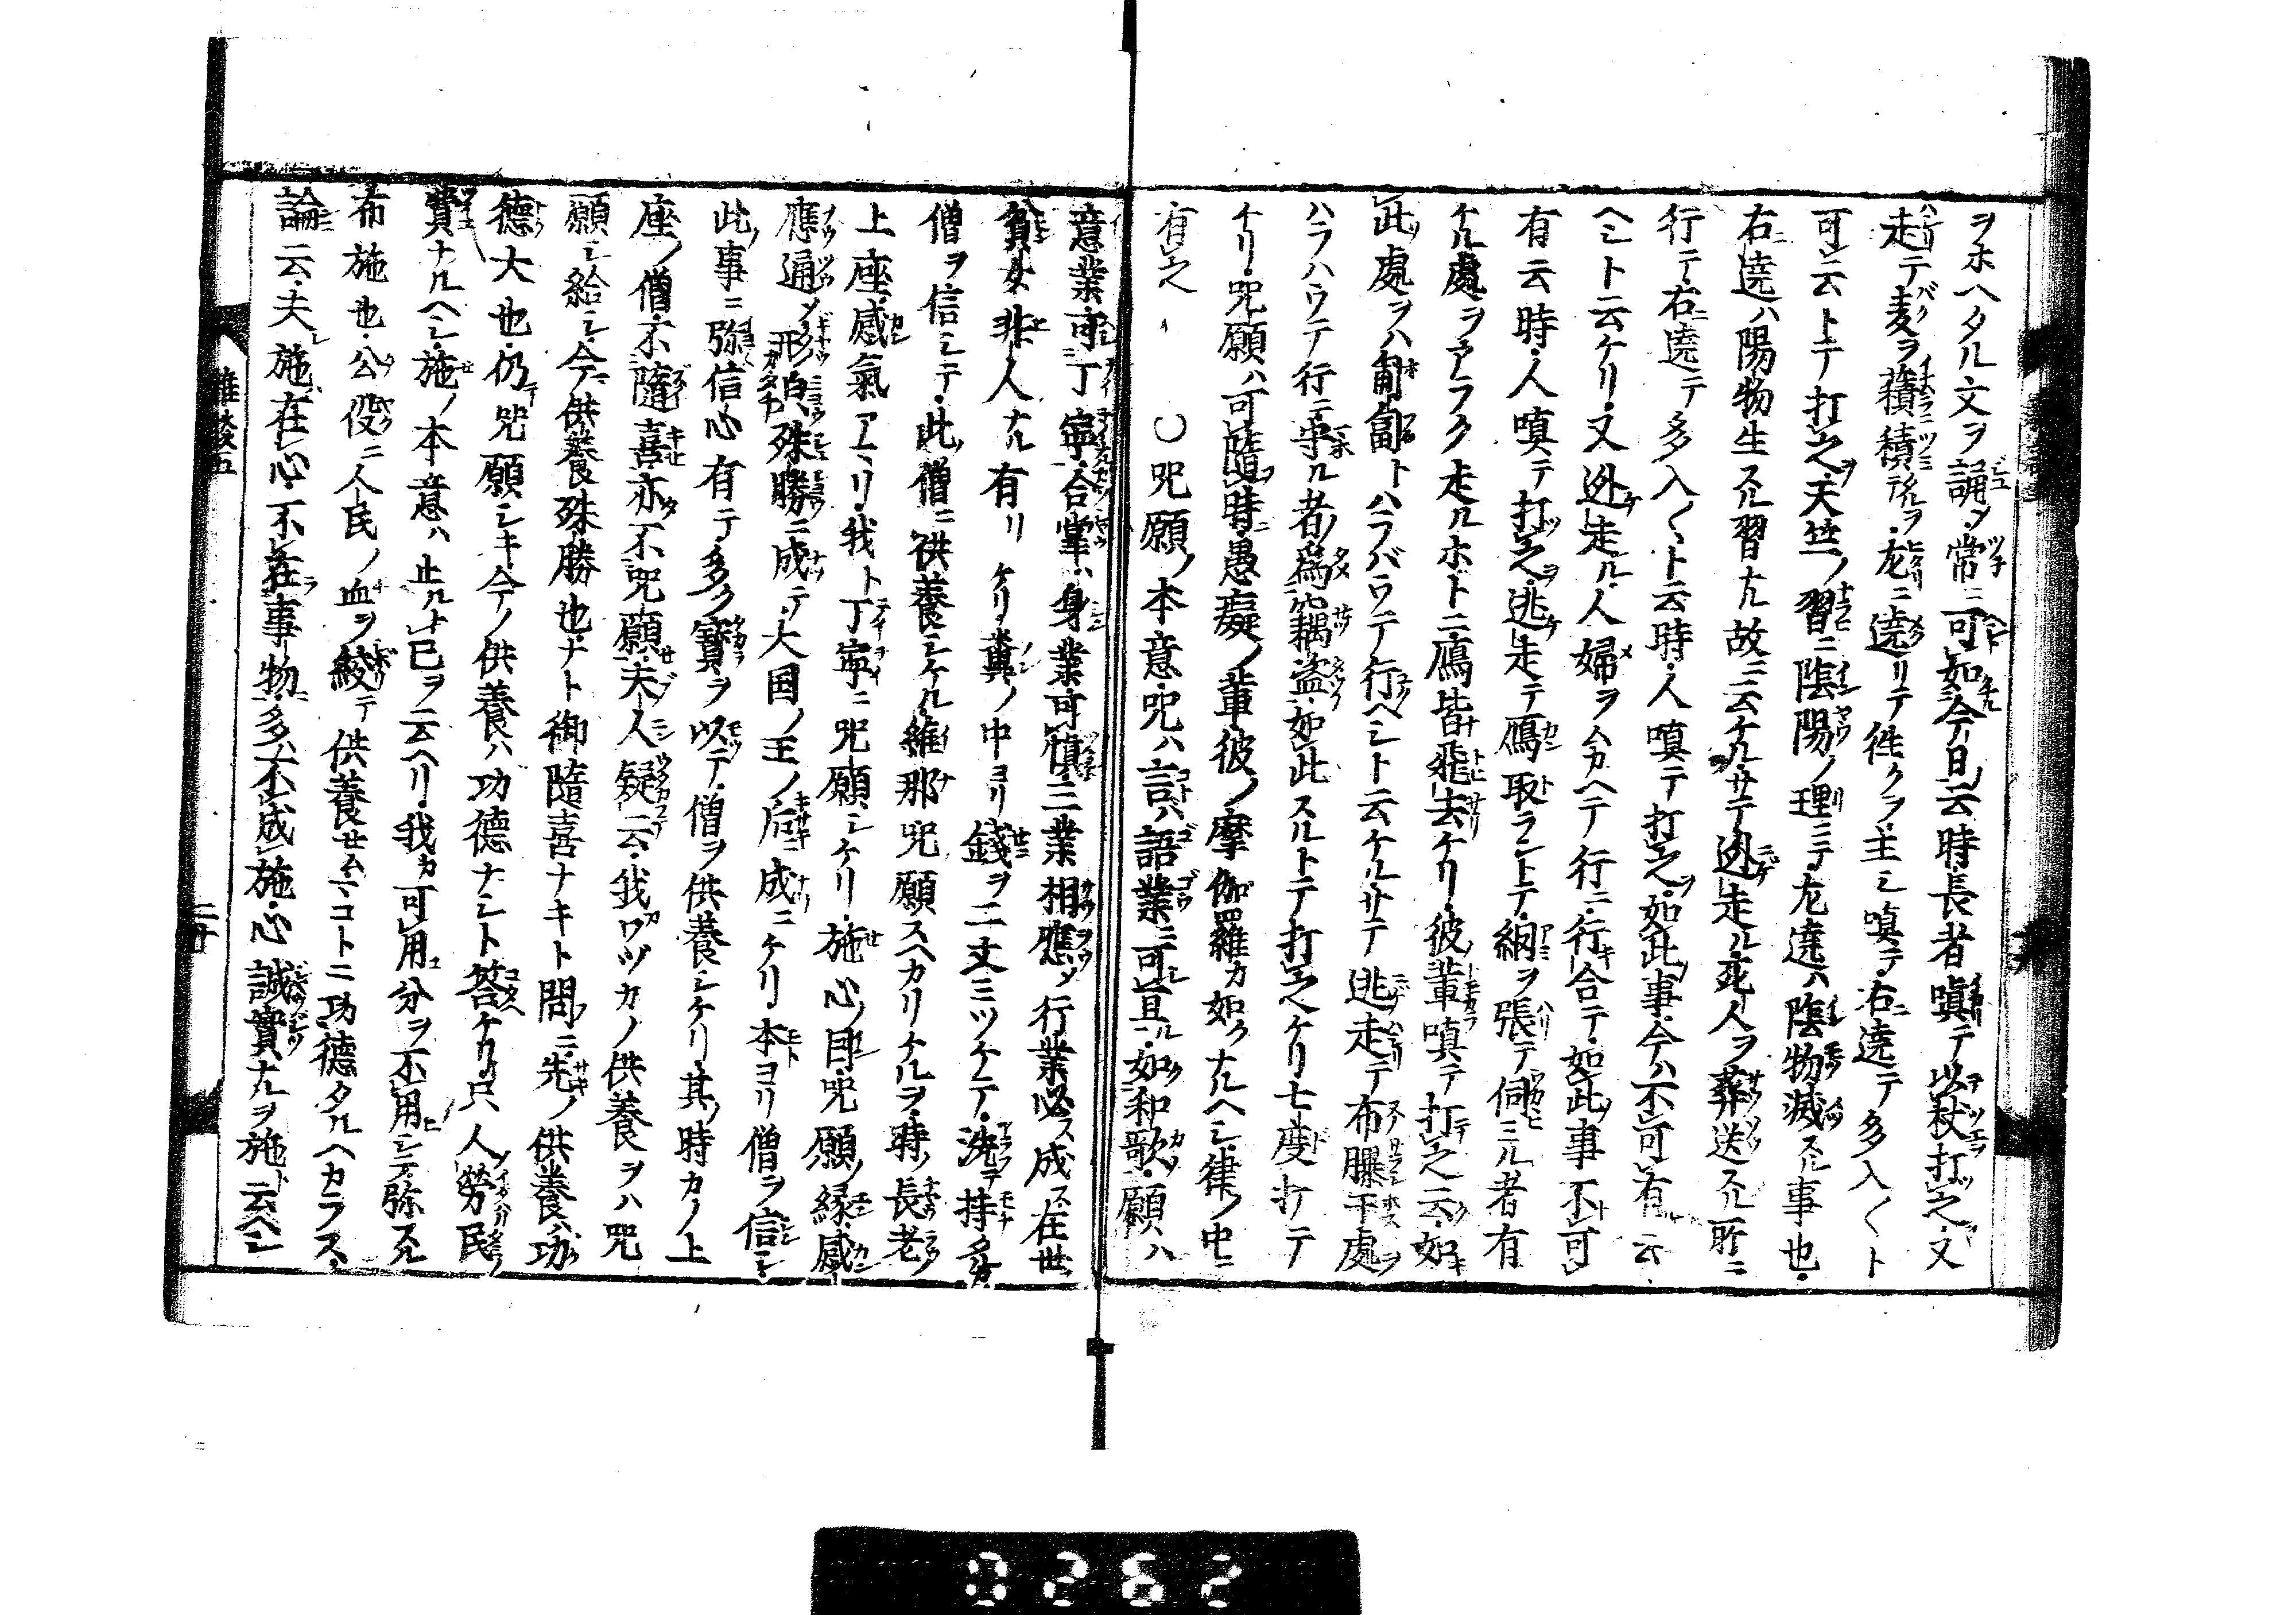 ヲホヘタル文ヲ誦シ常ニ可如今日云時長者嗔テ以杖打之又
走テ麦ヲ積積所ヲ左ニ遶リテ往クヲ主シ嗔テ右遶テ多入〳〵ト
可云トテ打之天竺ノ習ニ陰陽ノ理ニテ左遶ハ陰物減スル事也
右遶ハ陽物生スル習ナル故ニ云ケル サテ迯走ル死人ヲ葬送スル所ニ
行テ右遶テ多入〳〵ト云時人嗔テ打之如此事今ハ不可有云
ヘシト云ケリ又迯走ル人婦ヲムカヘテ行ニ行合テ如此事不可
有云時人嗔テ打之逃走テ鴈取ラントテ網ヲ張テ伺ミル者有
ケル處ヲアラク走ルホトニ鴈皆飛去ケリ彼輩嗔テ打之云如
此處ヲハ匍匐トハラバウテ行ヘシト云ケル サテ逃走テ布曝干處
ハラハウテ行ニ守ル者為竊盗如此スルトテ打之ケリ七度打テ
ケリ咒願ハ可隨時愚癡ノ輩彼ノ摩伽羅カ如クナルヘシ律ノ中ニ
有之 〇咒願ノ本意咒ハ言ハ語業ニ可宜ル如和歌願ハ
意業可丁寧合掌ハ身業可慎三業相應シテ行業必ス成ス在世
貧女非人ナル有リケリ糞ノ中ヨリ錢ヲ二文ミツケテ洗テ持多
僧ヲ信シテ此僧ニ供養シケル維那咒願スヘカリケルヲ時ノ長老
上座感氣アリ我ト丁寧ニ咒願シケリ施心ノ因咒願ノ縁感
應通シ形貌殊勝ニ成テ大国ノ王ノ后ニ成ニケリ本ヨリ僧ヲ信シ
此事ニ弥信心有テ多ク寳ヲ以テ僧ヲ供養シケリ其時カノ上
座ノ僧不隨喜亦不咒願夫人疑云我ワヅカノ供養ヲハ咒
願シ給シ今供養殊勝也ナト御隨喜ナキト問ニ先ノ供養ハ功
德大也仍咒願シキ今ノ供養ハ功德ナシト答ケリ只人労民
費ナルヘシ施ノ本意ハ止ルト已ヲ云ヘリ我カ可用分ヲ不用シテ弥スル
布施也公役ニ人民ノ血ヲ絞テ供養セムマコトニ功德タルヘカラス
論云夫施在心不在事物多不成施心誠實ナルヲ施ト云ヘシ
雜談五
二十
0262